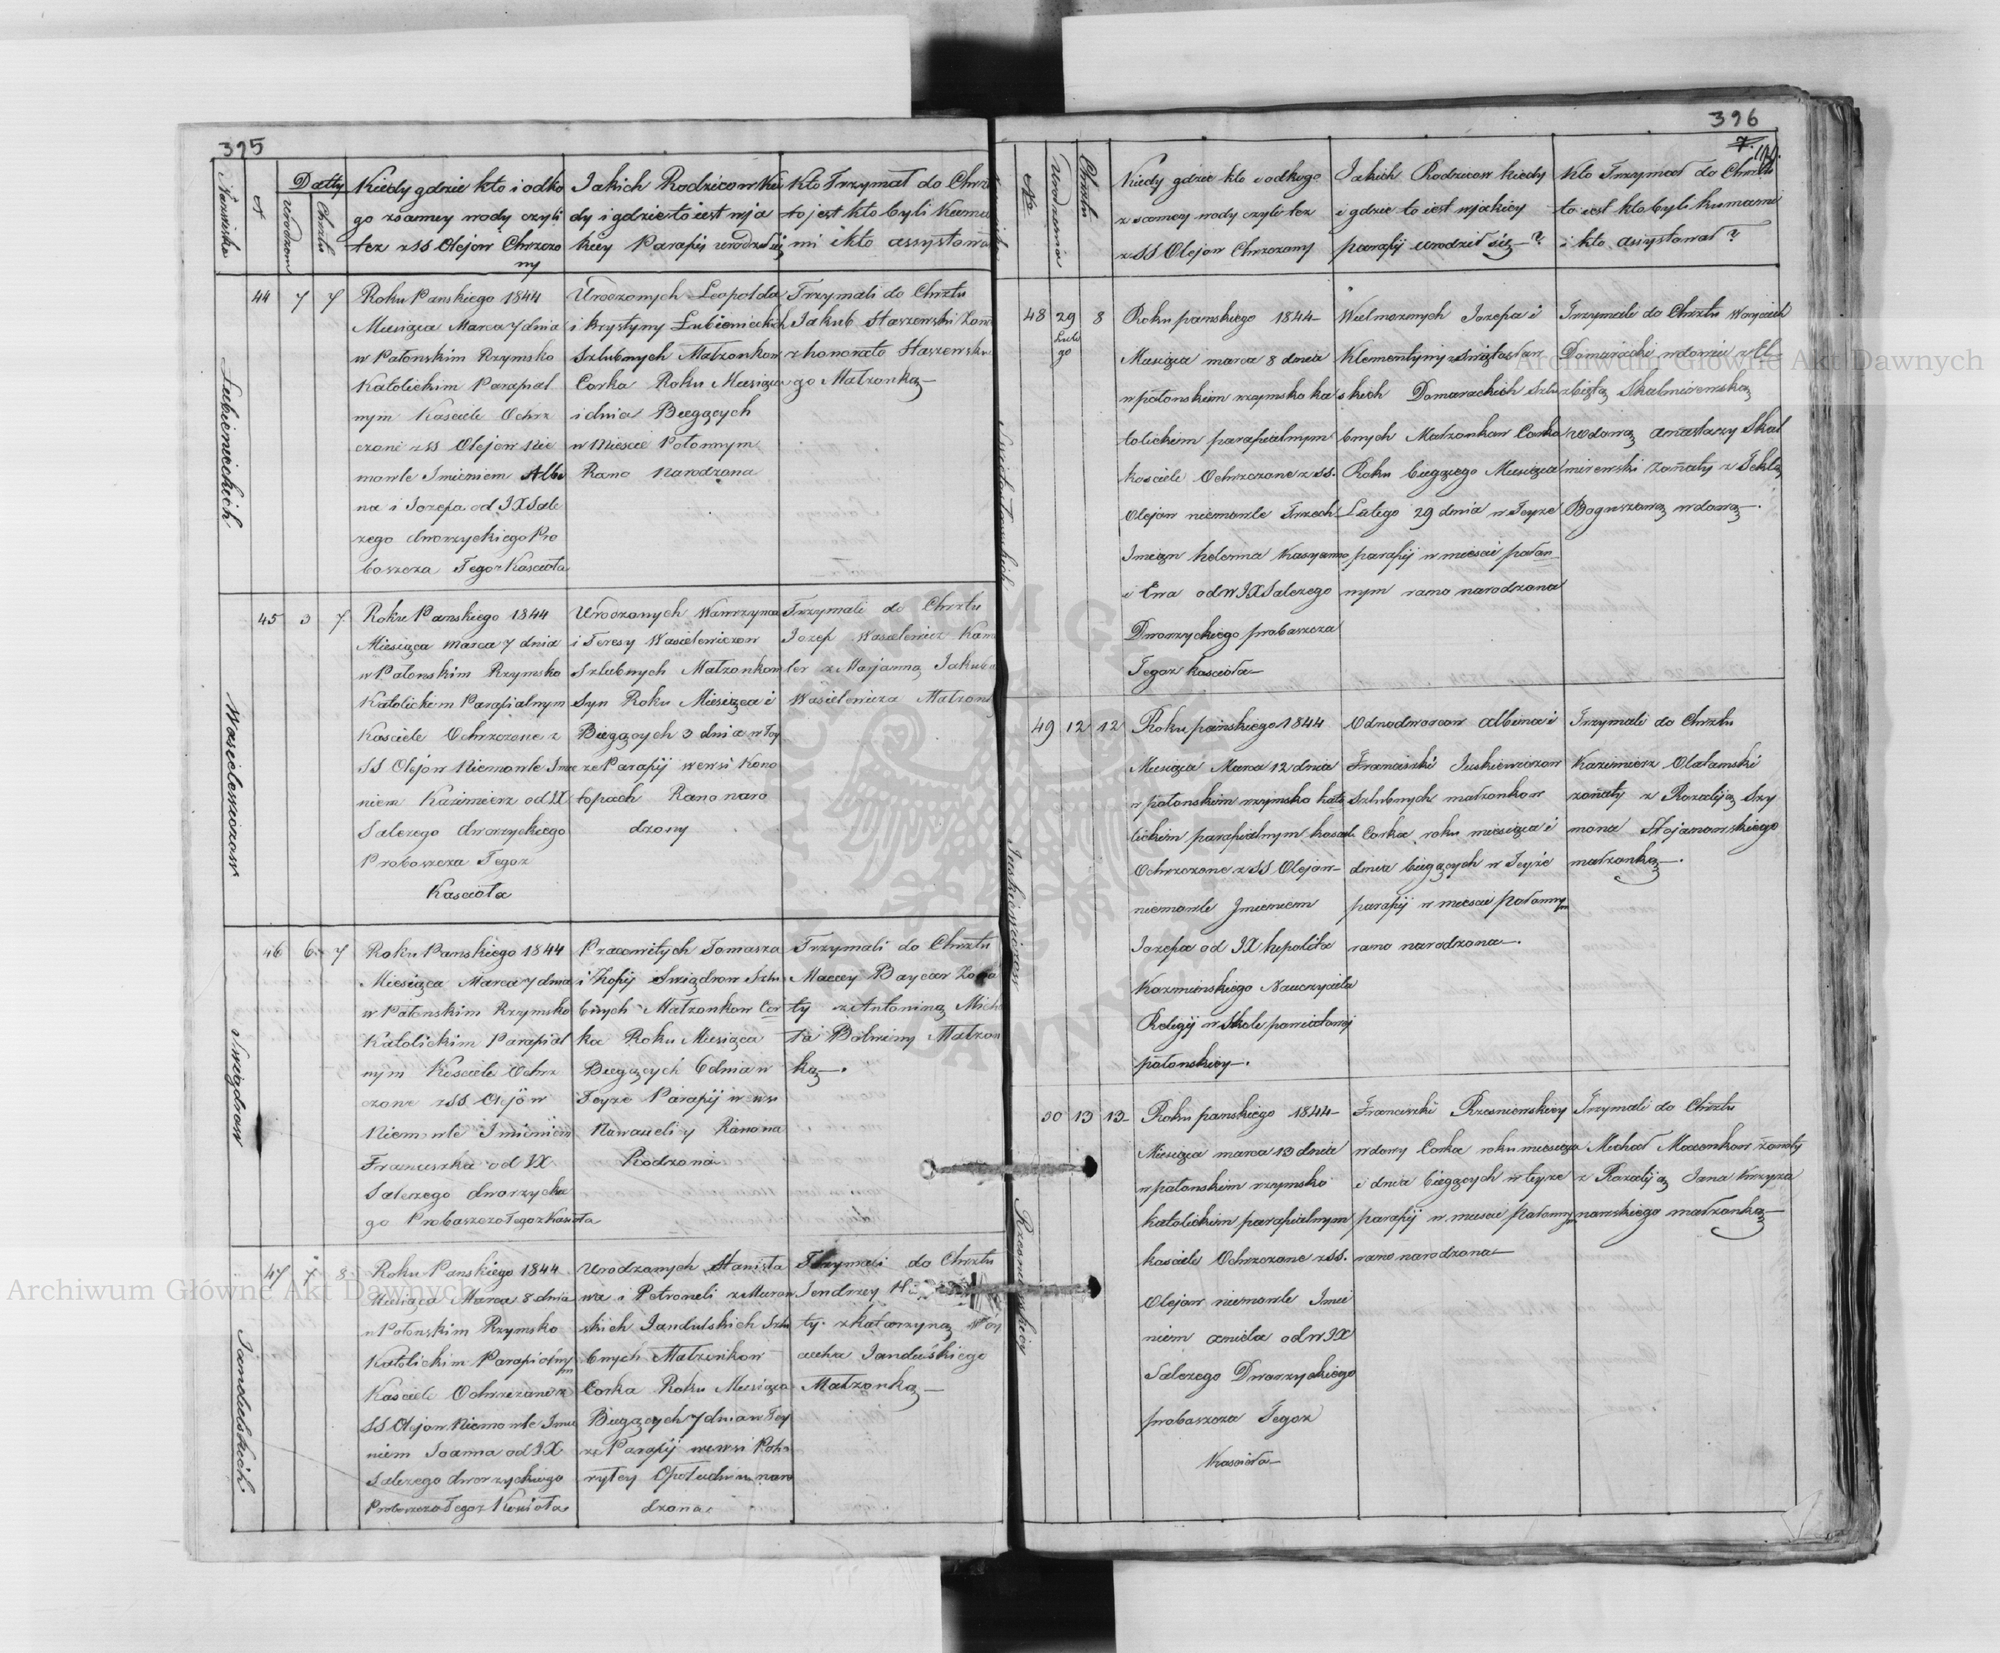 395
Datty
Nazwisko
№
Urodzem
Chrztu
Kiedy gdzie kto i odko
go zsamey wody czyli
tez zSS Olejow Chrzczo
ny
Jakich Rodzicow Kie
dy i gdzie to iest wja
kiey Parafij urodził się
Kto Trzymał do Chrz
to jest kto byli Kuma
mi i kto assystował
Lubienieckich
44 7 7
Roku Panskiego 1844
Miesiąca Marca 7 dnia
w Połonskim Rzymsko
Katolickim Parafial
nym Kosciele Ochrz
czone zSS Olejow Nie
mowle Imieniem Albi
na i Jozefa od JX Sale
zego dworzyckiego Pro
boszcza Tegoz Koscioła
Urodzonych Leopolda
i Krystyny Lubienieckich
Szlubnych Małzonkow
Corka Roku Miesiąca
i dnia Biegących
w Miescie Połonnym
Rano Narodzona
Trzymali do Chrztu
Jakub Staszewski Zon
z honoratą Staszewskie
go Małzonką
Wasielewiczow
45 3 7
Roku Panskiego 1844
Miesiąca Marca 7 dnia
w Połonskim Rzymsko
Katolickim Parafialnym
Kosciele Ochrzczone z
SS Olejow Niemowle Imie
niem Kazimierz od JX
Salezego dworzyckiego
Proboszcza Tegoz
Koscioła
Urodzonych Wawrzynca
i Teresy Wasielewiczow
Szlubnych Małzonkow
Syn Roku Miesiąca i
Biegących 3 dnia w Tey
ze Parafij wewsi Kono
topach Rano naro
dzony
Trzymali do Chrztu
Jozef Wasielewicz Kawa
ler z Marjanną Jakuba
Wasielewicza Małzonk
Swiądrow
46 6 7
Roku Panskiego 1844
Miesiąca Marca 7 dnia
w Połonskim Rzymsko
Katolickim Parafial
nym Kosciele Ochrz
czone zSS Olejow
Niemowle Imieniem
Franciszka od JX
Salezego dworzyckie
go Proboszcza Tegoz Koscioła
Pracowitych Tomasza
i Zofij Swiądrow Szlu
bnych Małzonkow Cor
ka Roku Miesiąca
Biegących 6 dnia w
Teyze Parafij wewsi
Nowosieli y Rano na
Rodzona
Trzymali do Chrztu
Maciey Baycar Zona
ty z Antoniną Mich
ła Małzon
ką.
Jandulskich
47 7 8
Roku Panskiego 1844
Miesiąca Marca 8 dnia
w Połonskim Rzymsko
Katolickim Parafialnym
Kosciele Ochrzczone z
SS Olejow Niemowle Imie
niem Joanna od JX
Salezego dworzyckiego
Proboszcza Tegoz Koscioła
Urodzonych Stanisła
wa i Petroneli zMurow
skich Jandulskich Szlu
bnych Małzonkow
Corka Roku Miesiąca
Biegących 7 dnia w Tey
ze Parafij wewsi
Opołudniu naro
dzona
Trzymali do Chrztu
Jendrzey
ty z Katarzyną Woy
ciecha Jandulskiego
Małzonką
396
Nazwisko
№
Urodzenia
Chrztu
Kiedy gdzie kto i odkogo
z samey wody czyli tez
zSS Olejow Chrzczony
Jakich Rodzicow kiedy
i gdzie to iest wjakiey
parafij urodził się?
Kto Trzymał do Chrztu
to iest kto byli kumami
i kto assystował?
48 29 8
Lute
go
Roku panskiego 1844
Miesiąca marca 8 dnia
w połonskim rzymsko ka
tolickim parafialnym
kosciele Ochrzczone zSS.
Olejow niemowle Trzech
Imion helenna
i Ewa od WJX Salezego
Dworzyckiego proboszcza
Tegoz kosciola
Wielmoznych Jozefa i
Klementyny z Swiętosław
skich Domaradzkich Szlu
bnych Małzonkow Corka
Roku biegącego Miesiąca
Lutego 29 dnia w Teyze
parafij w miescie połon
nym rano narodzona
Trzymali do Chrztu Woyciech
Domaradzki wdowiec z El
zbietą Skalmirowską
wdową Anastazy Skal
mirowski Zonaty z Teklą
Boguszową wdową.
Juskiewiczow
49 12 12
Roku panskiego 1844
Miesiąca Marca 12 dnia
w połonskim rzymsko kato
lickim parafialnym kosciele
Ochrzczone zSS Olejow
niemowle Imieniem
Jozefa od JX hipolita
Kazmirskiego Nauczyciela
Religij w Skole powiatowej
połonskiey.
Odnodworcow Albina i
Franciszki Juskiewiczow
Szlubnych małzonkow
Corka roku miesiąca i
dnia biegących w Teyże
parafij w miescie połonnym
rano narodzona.
Trzymali do Chrztu
Kazimierz Olałamski
zonaty z Rozaliją Szy
mona Stojanowskiego
małzonką.
Rzesniowskiey
50 13 13
Roku panskiego 1844
Miesiąca marca 13 dnia
w połonskim rzymsko
katolickim parafialnym
kosciele Ochrzczone zSS.
Olejow niemowle Imie
niem Aniela od WJX
Salezego Dworzyckiego
proboszcza Tegoz
Kosciola
Franciszki Rzesniowskiey
wdowy Corka roku miesiąca
i dnia biegących w teyze
parafij w miescie połonnym
rano narodzona
Trzymali do Chrztu
Michał zonaty
z Rozaliją Jana Krzyza
nowskiego małzonką
Archiwum Główne Akt Dawnych
Archiwum Główne Akt Dawnych